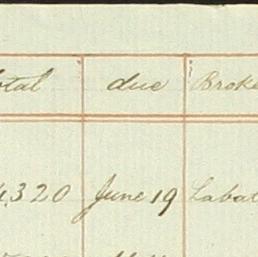 otal due Broke
4,320 June 19 Labat